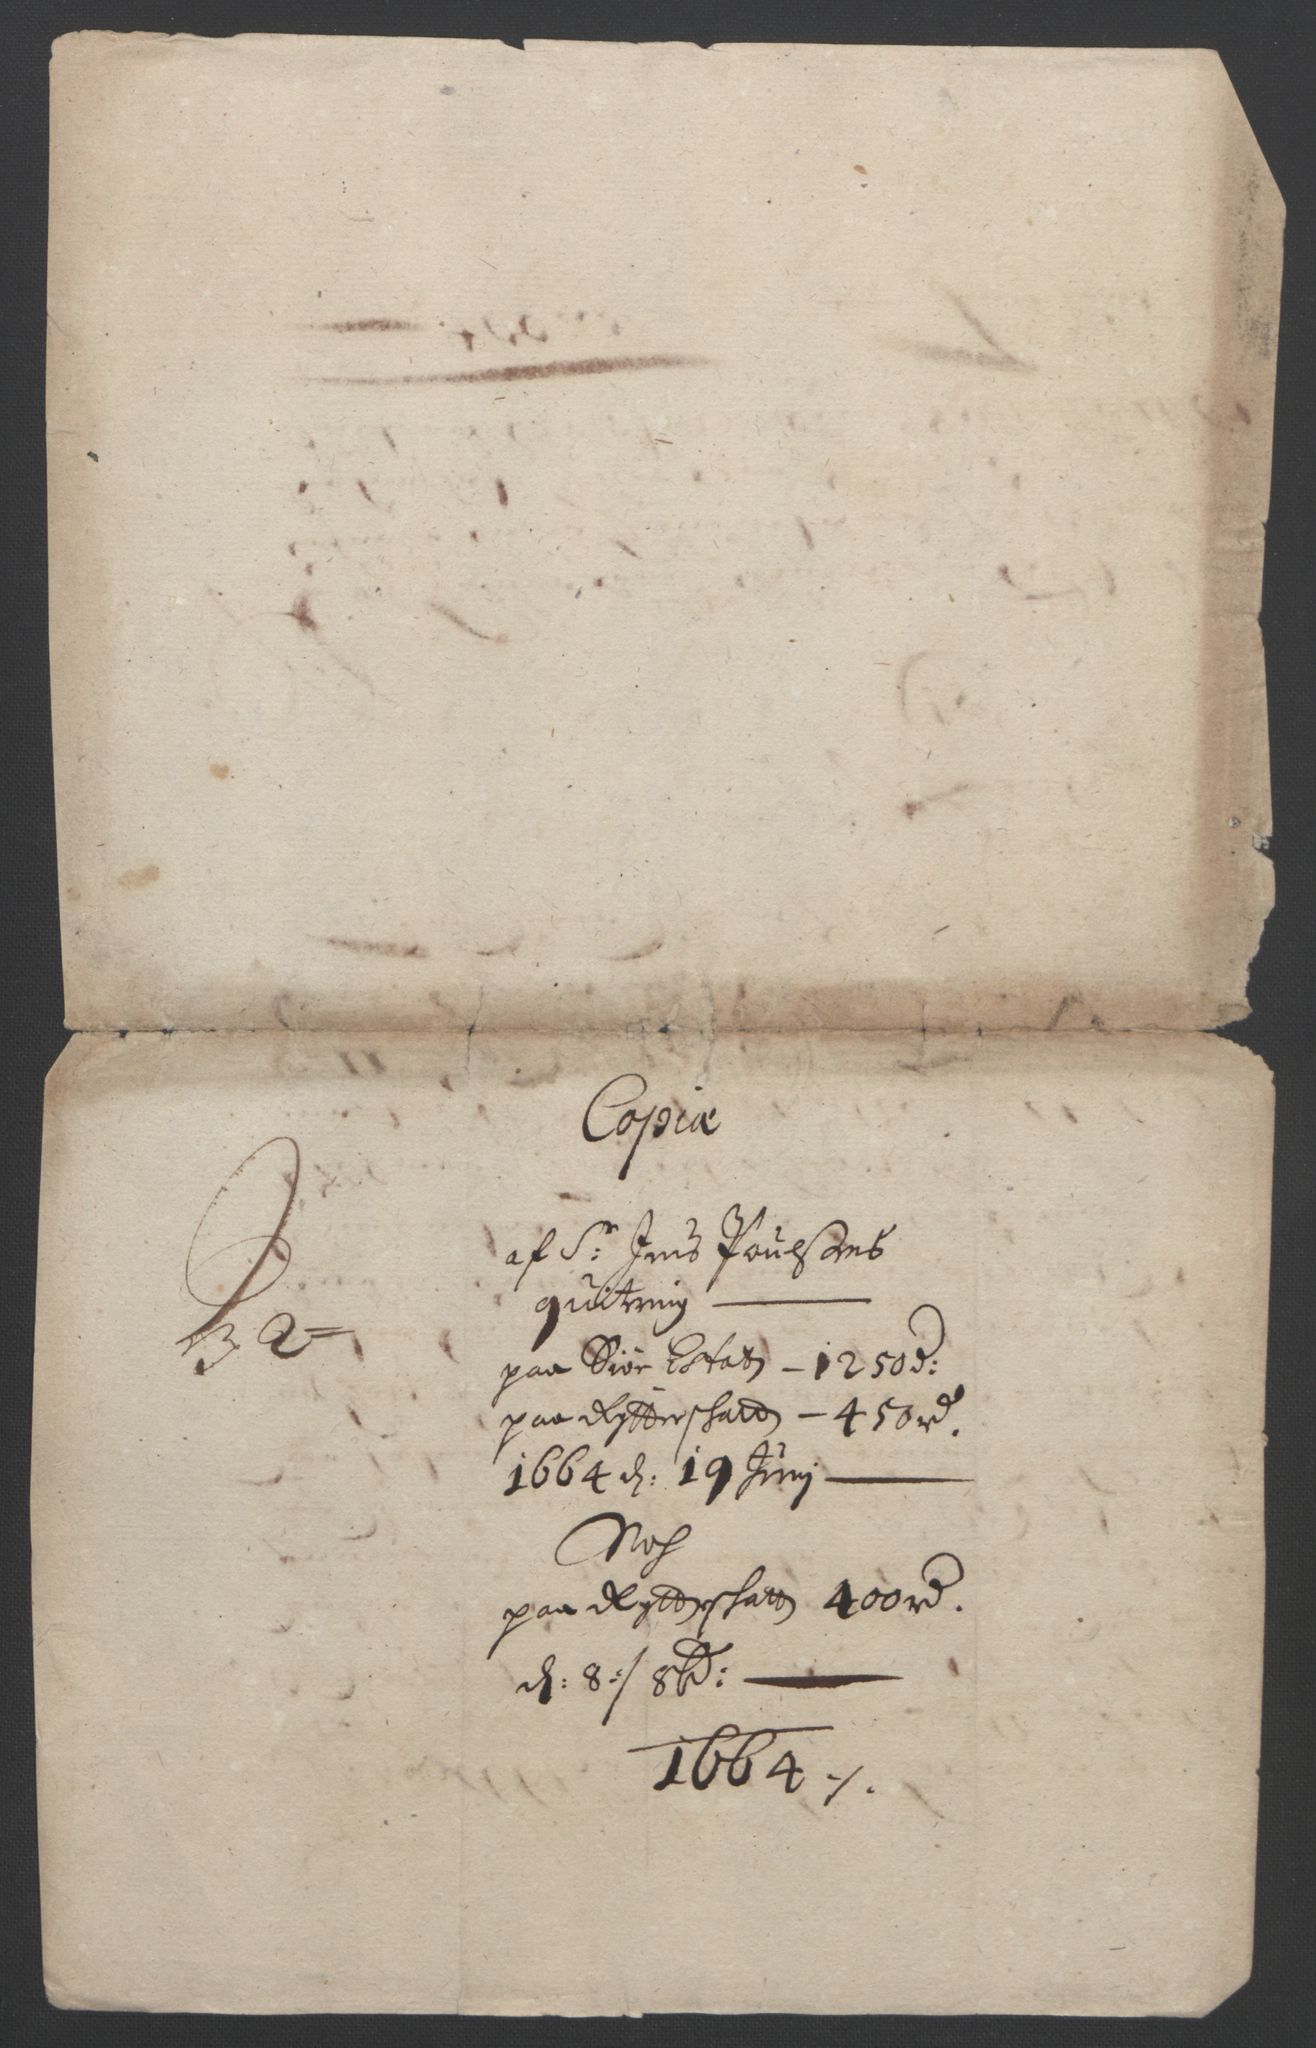 Copia
af Sr: Jens Poulsens
quitering
paa Siøe Estatz – 1250 d:
paa Rytterskatt – 450 rd.
1664 d: 19 Junij
Noch
paa Rytterskatt 400 rd.
d: 8:/ 8b:
1664 ./.